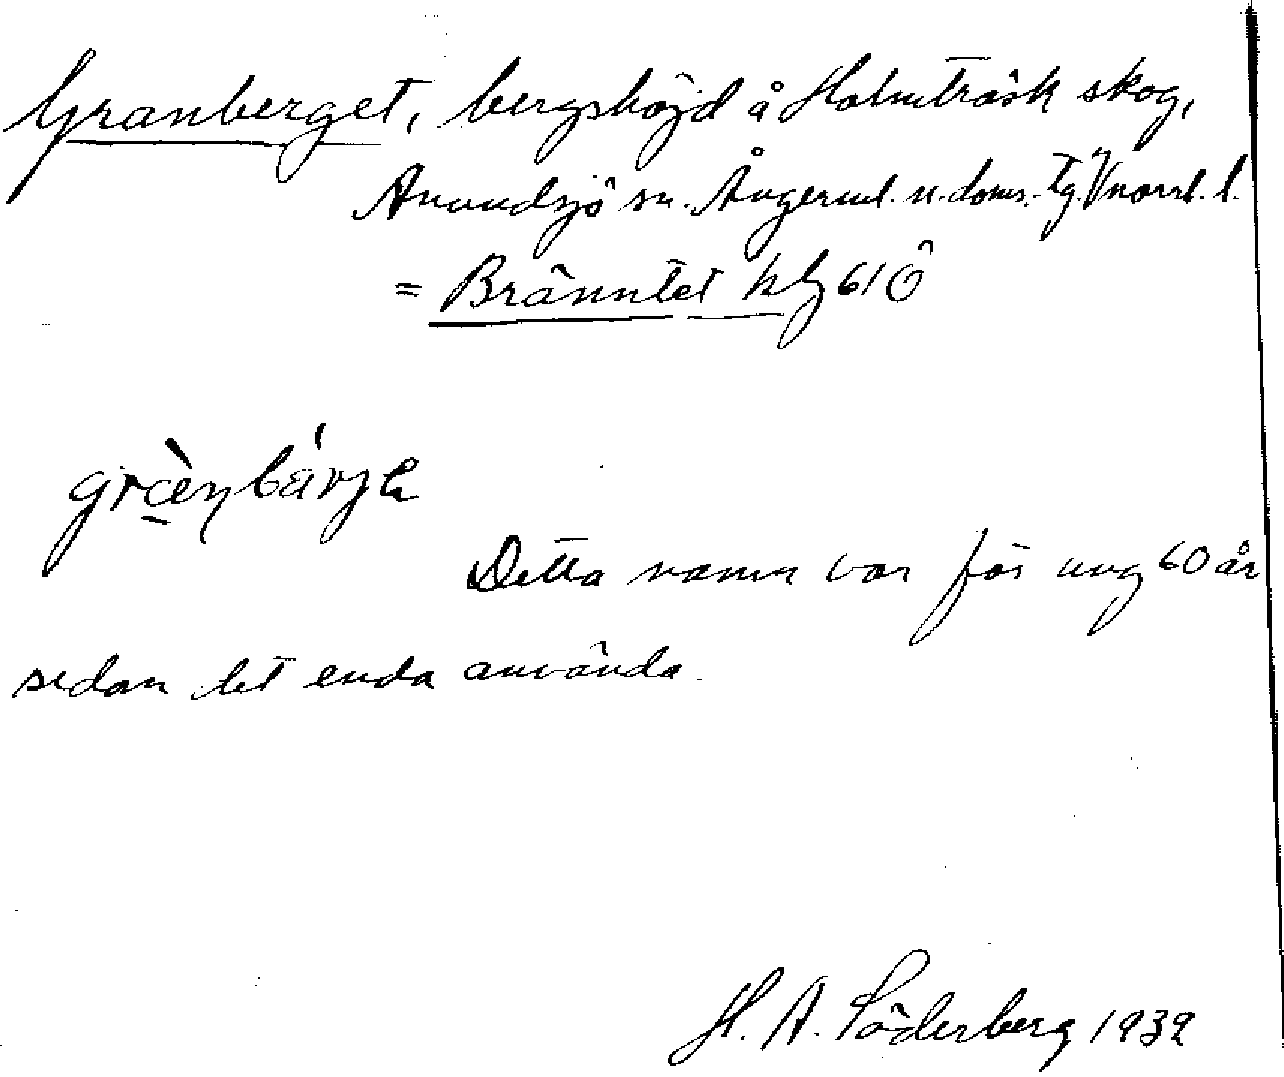 Granberget, bergshöjd å Holmträsk skog,
Anundsjö sn. Ångerml. n. doms. tg. V norrl. l.
= Bränntet kbl 61 Ö
Detta namn var för ung 60 år
sedan det enda använda.
H. A. Söderberg 1939